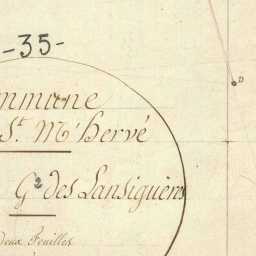 -35-
mmune
St. M' hervé
Gde des Lansiguères
Deux Feuilles
D